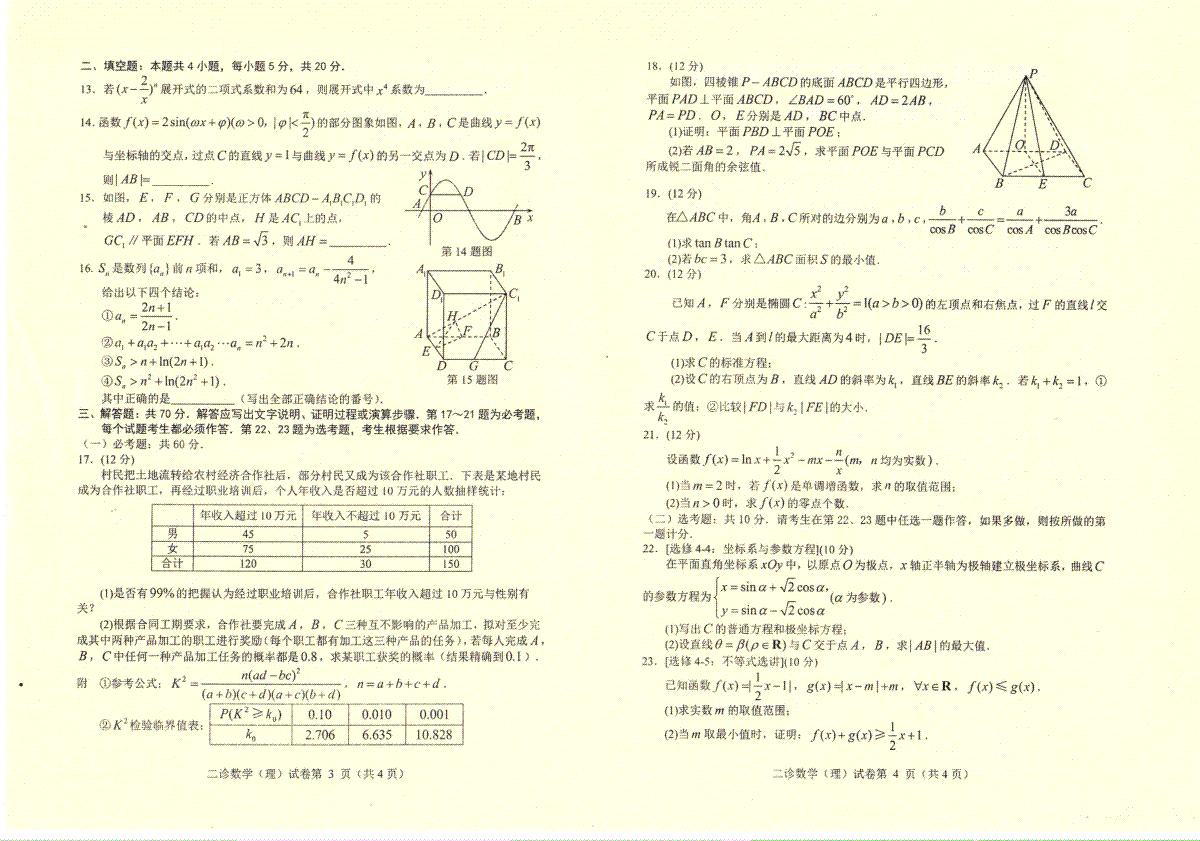 二、填空题：本题共 4 小题，每小题 5 分，共 20 分．
13．若(x－2/x)ⁿ 展开式的二项式系数和为 64，则展开式中 x⁴ 系数为________．
14．函数 f(x)＝2sin(ωx＋φ)(ω＞0，|φ|＜π/2)的部分图象如图，A，B，C 是曲线 y＝f(x)
与坐标轴的交点，过点 C 的直线 y＝1 与曲线 y＝f(x) 的另一交点为 D．若|CD|＝2π/3，
则|AB|＝________．
15．如图，E，F，G 分别是正方体 ABCD－A₁B₁C₁D₁ 的
棱 AD，AB，CD 的中点，H 是 AC₁ 上的点，
GC₁ // 平面 EFH．若 AB＝√3，则 AH＝________．
y
C D
A
O B x
第 14 题图
16．Sₙ 是数列{aₙ}前 n 项和，a₁＝3，aₙ₊₁＝aₙ－4/(4n²－1)，
给出以下四个结论：
①aₙ＝(2n＋1)/(2n－1)．
②a₁＋a₁a₂＋⋯＋a₁a₂⋯aₙ＝n²＋2n．
③Sₙ＞n＋ln(2n＋1)．
④Sₙ＞n²＋ln(2n²＋1)．
其中正确的是________（写出全部正确结论的番号）．
A₁ B₁
D₁ C₁
H
A F B
E
D G C
第 15 题图
三、解答题：共 70 分．解答应写出文字说明、证明过程或演算步骤．第 17～21 题为必考题，
每个试题考生都必须作答．第 22、23 题为选考题，考生根据要求作答．
（一）必考题：共 60 分．
17．(12 分)
村民把土地流转给农村经济合作社后，部分村民又成为该合作社职工．下表是某地村民
成为合作社职工，再经过职业培训后，个人年收入是否超过 10 万元的人数抽样统计：
年收入超过 10 万元 年收入不超过 10 万元 合计
男 45 5 50
女 75 25 100
合计 120 30 150
(1)是否有 99% 的把握认为经过职业培训后，合作社职工年收入超过 10 万元与性别有
关？
(2)根据合同工期要求，合作社要完成 A，B，C 三种互不影响的产品加工，拟对至少完
成其中两种产品加工的职工进行奖励（每个职工都有加工这三种产品的任务），若每人完成 A，
B，C 中任何一种产品加工任务的概率都是 0.8，求某职工获奖的概率（结果精确到 0.1）．
附 ①参考公式：K²＝n(ad－bc)²/((a＋b)(c＋d)(a＋c)(b＋d))，n＝a＋b＋c＋d．
②K² 检验临界值表：
P(K²≥k₀) 0.10 0.010 0.001
k₀ 2.706 6.635 10.828
二诊数学（理）试卷第 3 页（共 4 页）
18．(12 分)
如图，四棱锥 P－ABCD 的底面 ABCD 是平行四边形，
平面 PAD⊥平面 ABCD，∠BAD＝60°，AD＝2AB，
PA＝PD．O，E 分别是 AD，BC 中点．
(1)证明：平面 PBD⊥平面 POE；
(2)若 AB＝2，PA＝2√5，求平面 POE 与平面 PCD
所成锐二面角的余弦值．
P
A O D
B E C
19．(12 分)
在△ABC 中，角 A，B，C 所对的边分别为 a，b，c，b/cosB＋c/cosC＝a/cosA＋3a/(cosBcosC)．
(1)求 tanBtanC；
(2)若 bc＝3，求△ABC 面积 S 的最小值．
20．(12 分)
已知 A，F 分别是椭圆 C：x²/a²＋y²/b²＝1(a＞b＞0) 的左顶点和右焦点，过 F 的直线 l 交
C 于点 D，E．当 A 到 l 的最大距离为 4 时，|DE|＝16/3．
(1)求 C 的标准方程；
(2)设 C 的右顶点为 B，直线 AD 的斜率为 k₁，直线 BE 的斜率 k₂．若 k₁＋k₂＝1，①
求 k₁/k₂ 的值；②比较|FD|与 k₂|FE|的大小．
21．(12 分)
设函数 f(x)＝ln x＋1/2 x²－mx－n/x(m，n 均为实数)．
(1)当 m＝2 时，若 f(x) 是单调增函数，求 n 的取值范围；
(2)当 n＞0 时，求 f(x) 的零点个数．
（二）选考题：共 10 分．请考生在第 22、23 题中任选一题作答，如果多做，则按所做的第
一题计分．
22．[选修 4-4：坐标系与参数方程](10 分)
在平面直角坐标系 xOy 中，以原点 O 为极点，x 轴正半轴为极轴建立极坐标系，曲线 C
的参数方程为{x＝sinα＋√2cosα，y＝sinα－√2cosα(α 为参数)．
(1)写出 C 的普通方程和极坐标方程；
(2)设直线 θ＝β(ρ∈R) 与 C 交于点 A，B，求|AB|的最大值．
23．[选修 4-5：不等式选讲](10 分)
已知函数 f(x)＝|1/2 x－1|，g(x)＝|x－m|＋m，∀x∈R，f(x)≤g(x)．
(1)求实数 m 的取值范围；
(2)当 m 取最小值时，证明：f(x)＋g(x)≥1/2 x＋1．
二诊数学（理）试卷第 4 页（共 4 页）